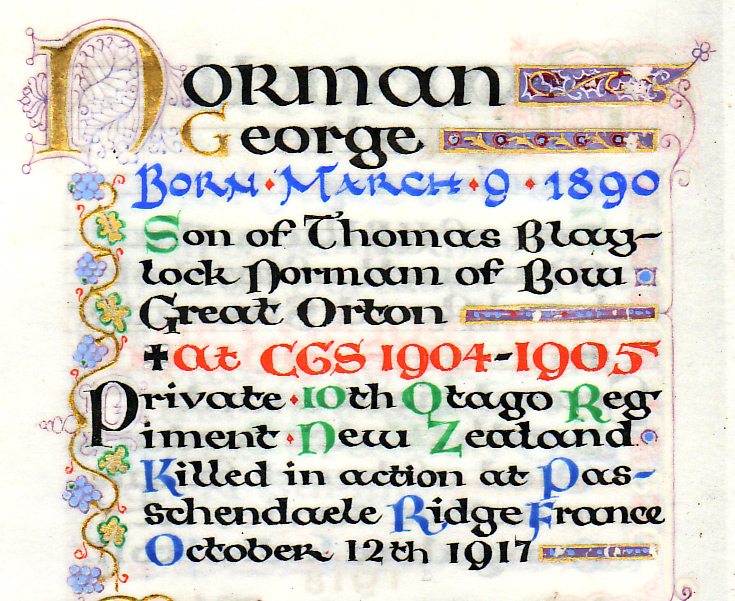 Norman
George
Born · March · 9 · 1890
Son of Thomas Blay-
lock Norman of Bow
Great Orton
✝at CGS 1904-1905
Private · 10th Otago Reg
iment · New Zealand
Killed in action at Pas-
schendaele Ridge France
October 12th 1917